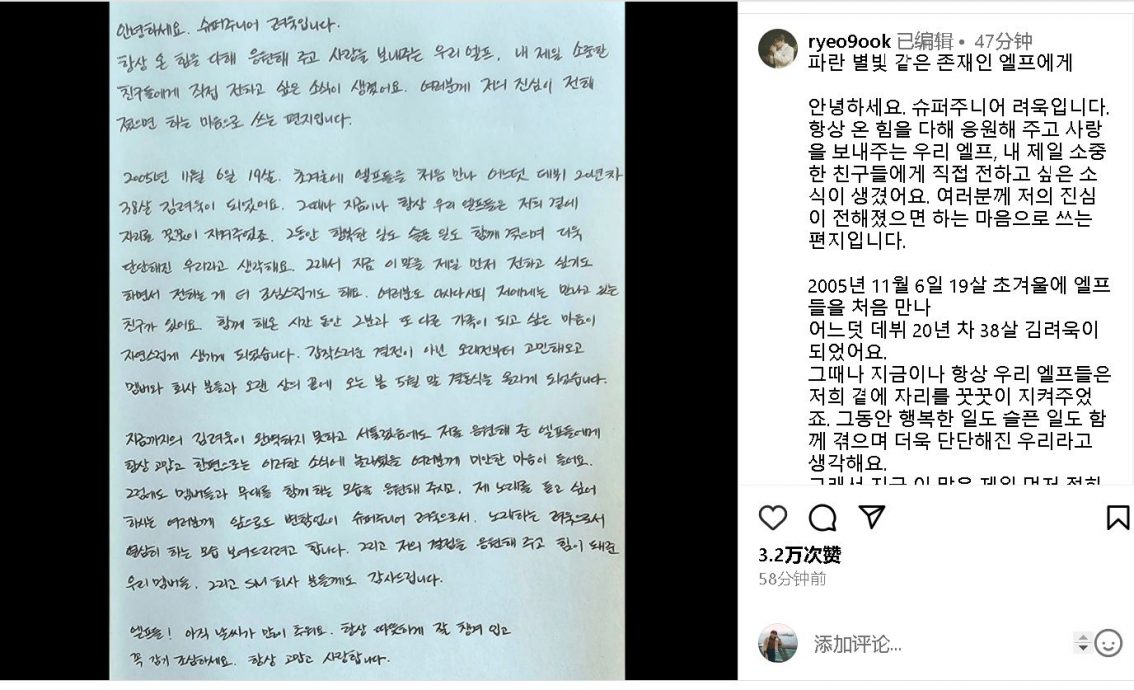 안녕하세요. 슈퍼주니어 려욱입니다.
항상 온 힘을 다해 응원해 주고 사랑을 보내주는 우리 엘프, 내 제일 소중한
친구들에게 직접 전하고 싶은 소식이 생겼어요. 여러분께 저의 진심이 전해
졌으면 하는 마음으로 쓰는 편지입니다.
2005년 11월 6일 19살. 초겨울에 엘프들을 처음 만나 어느덧 데뷔 20년 차
38살 김려욱이 되었어요. 그때나 지금이나 항상 우리 엘프들은 저희 곁에
자리를 꿋꿋이 지켜주었죠. 그동안 행복한 일도 슬픈 일도 함께 겪으며 더욱
단단해진 우리라고 생각해요. 그래서 지금 이 말을 제일 먼저 전하고 싶기도
하면서 전하는 게 더 조심스럽기도 해요. 여러분도 아시다시피 저에게는 만나고 있는
친구가 있어요. 함께 해온 시간 동안 그분과 또 다른 가족이 되고 싶은 마음이
자연스럽게 생기게 되었습니다. 갑작스러운 결정이 아닌 오래전부터 고민해오고
멤버와 회사 분들과 오랜 상의 끝에 오는 봄 5월 말 결혼식을 올리게 되었습니다.
지금까지의 김려욱이 완벽하지 못하고 서툴렀음에도 저를 응원해 준 엘프들에게
항상 고맙고 한편으로는 이러한 소식에 놀라셨을 여러분께 미안한 마음이 들어요.
그럼에도 멤버들과 무대를 함께 하는 모습을 응원해 주시고, 제 노래를 듣고 싶어
하시는 여러분께 앞으로도 변함없이 슈퍼주니어 려욱으로서, 노래하는 려욱으로서
열심히 하는 모습 보여드리려고 합니다. 그리고 저의 결정을 응원해 주고 힘이 돼준
우리 멤버들, 그리고 SM 회사 분들께도 감사드립니다.
엘프들! 아직 날씨가 많이 추워요. 항상 따뜻하게 잘 챙겨 입고
꼭 감기 조심하세요. 항상 고맙고 사랑합니다.
ryeo9ook 已编辑 • 47分钟
파란 별빛 같은 존재인 엘프에게
안녕하세요. 슈퍼주니어 려욱입니다.
항상 온 힘을 다해 응원해 주고 사랑
을 보내주는 우리 엘프, 내 제일 소중
한 친구들에게 직접 전하고 싶은 소
식이 생겼어요. 여러분께 저의 진심
이 전해졌으면 하는 마음으로 쓰는
편지입니다.
2005년 11월 6일 19살 초겨울에 엘프
들을 처음 만나
어느덧 데뷔 20년 차 38살 김려욱이
되었어요.
그때나 지금이나 항상 우리 엘프들은
저희 곁에 자리를 꿋꿋이 지켜주었
죠. 그동안 행복한 일도 슬픈 일도 함
께 겪으며 더욱 단단해진 우리라고
생각해요.
그래서 지금 이 말을 제일 먼저 전하
3.2万次赞
58分钟前
添加评论...